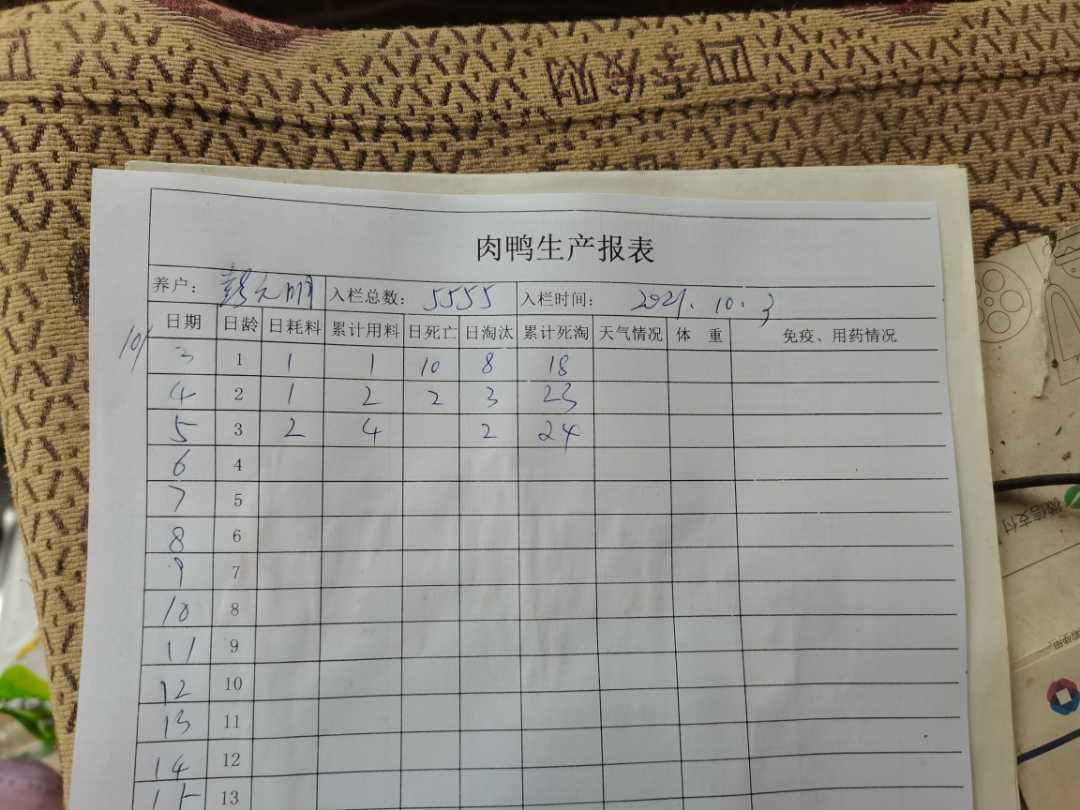 肉鸭生产报表
养户： 入栏总数： 5555 入栏时间： 2021.10.3
日期 日龄 日耗料 累计用料 日死亡 日淘汰 累计死淘 天气情况 体 重 免疫、用药情况
10/3 1 1 1 10 8 18
4 2 1 2 2 3 23
5 3 2 4 2 24
6 4
7 5
8 6
9 7
10 8
11 9
12 10
13 11
14 12
15 13
微信支付